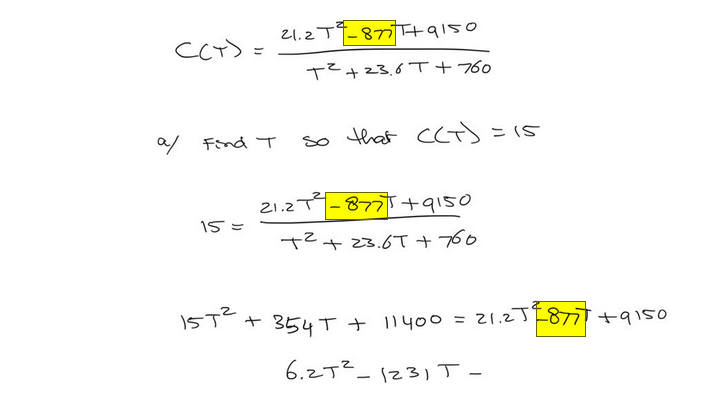 C(T) = 21.2T² - 877T + 9150
T² + 23.6T + 760
a/ Find T so that C(T) = 15
15 = 21.2T² - 877T + 9150
T² + 23.6T + 760
15T² + 354T + 11400 = 21.2T² - 877T + 9150
6.2T² - 1231T -